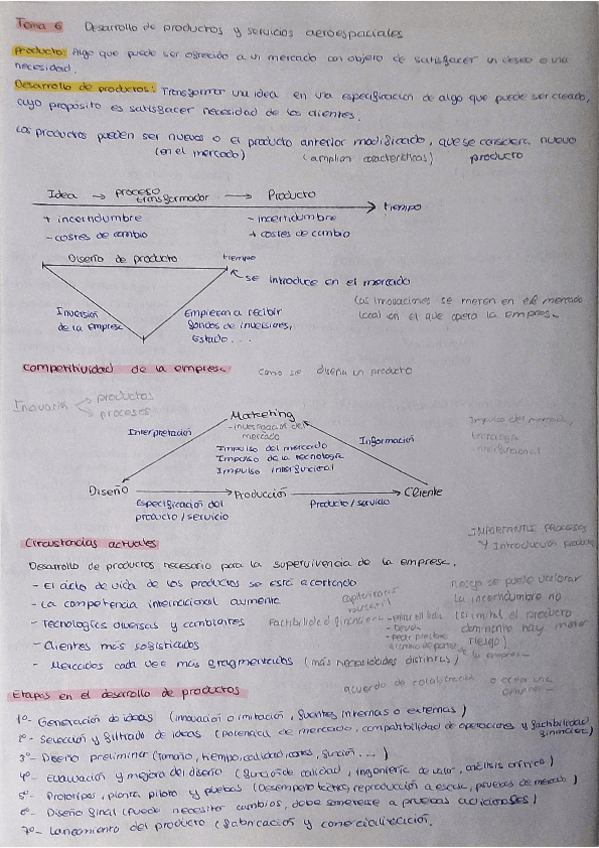 Tema 6 Desarrollo de productos y servicios aeroespaciales
Producto: Algo que puede ser ofrecido a un mercado con objeto de satisfacer un deseo o una
necesidad.
Desarrollo de productos: Transformar una idea en una especificación de algo que puede ser creado,
cuyo propósito es satisfacer necesidad de los clientes.
Los productos pueden ser nuevos o el producto anterior modificado, que se considera nuevo
(en el mercado) (amplian características) producto
Idea → proceso transformador → Producto
tiempo
+ incertidumbre - incertidumbre
- costes de cambio + costes de cambio
Diseño de producto tiempo
se introduce en el mercado
Inversión Empiezan a recibir
de la empresa fondos de inversiones,
estado...
Las innovaciones se meten en el mercado
local en el que opera la empresa
Competitividad de la empresa como se diseña un producto
Innovaria productos
procesos
Marketing
- investigación del
mercado
Interpretación Información
Impulso del mercado
Impulso de la tecnología
Impulso interfuncional
Impulso del mercado,
tecnología
interfuncional
Diseño → Producción → Cliente
Especificación del Producto/servicio
producto/servicio
Circustancias actuales
IMPORTANTE PROCESOS
Y Introducción producto
Desarrollo de productos necesario para la supervivencia de la empresa.
- El ciclo de vida de los productos se está acortando
- La competencia internacional aumenta
- Tecnologías diversas y cambiantes
Factibilidad financiera
- Clientes más sofisticados
- Mercados cada vez más fragmentados (más necesidades distintas)
se puede valorar
la incertidumbre no
el producto
hay mayor
riesgo)
de la empresa
acuerdo de colaboración o crear una
Etapas en el desarrollo de productos
1º- Generación de ideas (innovación o imitación, fuentes internas o externas)
2º- Selección y filtrado de ideas (potencial de mercado, compatibilidad de operaciones y factibilidad
financiera)
3º- Diseño preliminar (Tamaño, tiempo, calidad, costes, función...)
4º- Evaluación y mejora del diseño (función de calidad, ingeniería de valor, análisis crítico)
5º- Prototipos, planta piloto y pruebas (Desempeño técnico, reproducción a escala, pruebas de mercado)
6º- Diseño final (puede necesitar cambios, debe someterse a pruebas adicionales)
7º- Lanzamiento del producto (fabricación y comercialización.